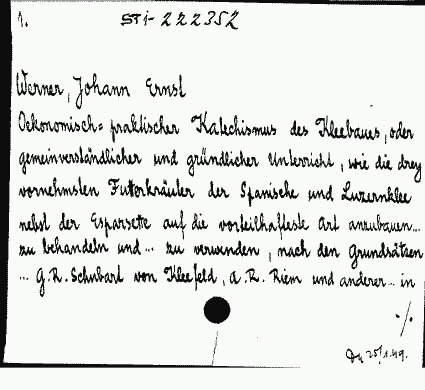 1.
ST 1- 222352
Werner, Johann Ernst
Oekonomisch= praktischer Katechismus des Kleebaues, oder
gemeinverständlicher und gründlicher Unterricht, wie die drey
vornehmsten Futterkräuter der Spanische und Luzernklee
nebst der Esparsette auf die vorteilhafteste Art anzubauen...
zu behandeln und... zu verwenden, nach den Grundsätzen
... G.R. Schubart von Kleefeld, A.R. Riem und anderer... in
./.
25/1.49.